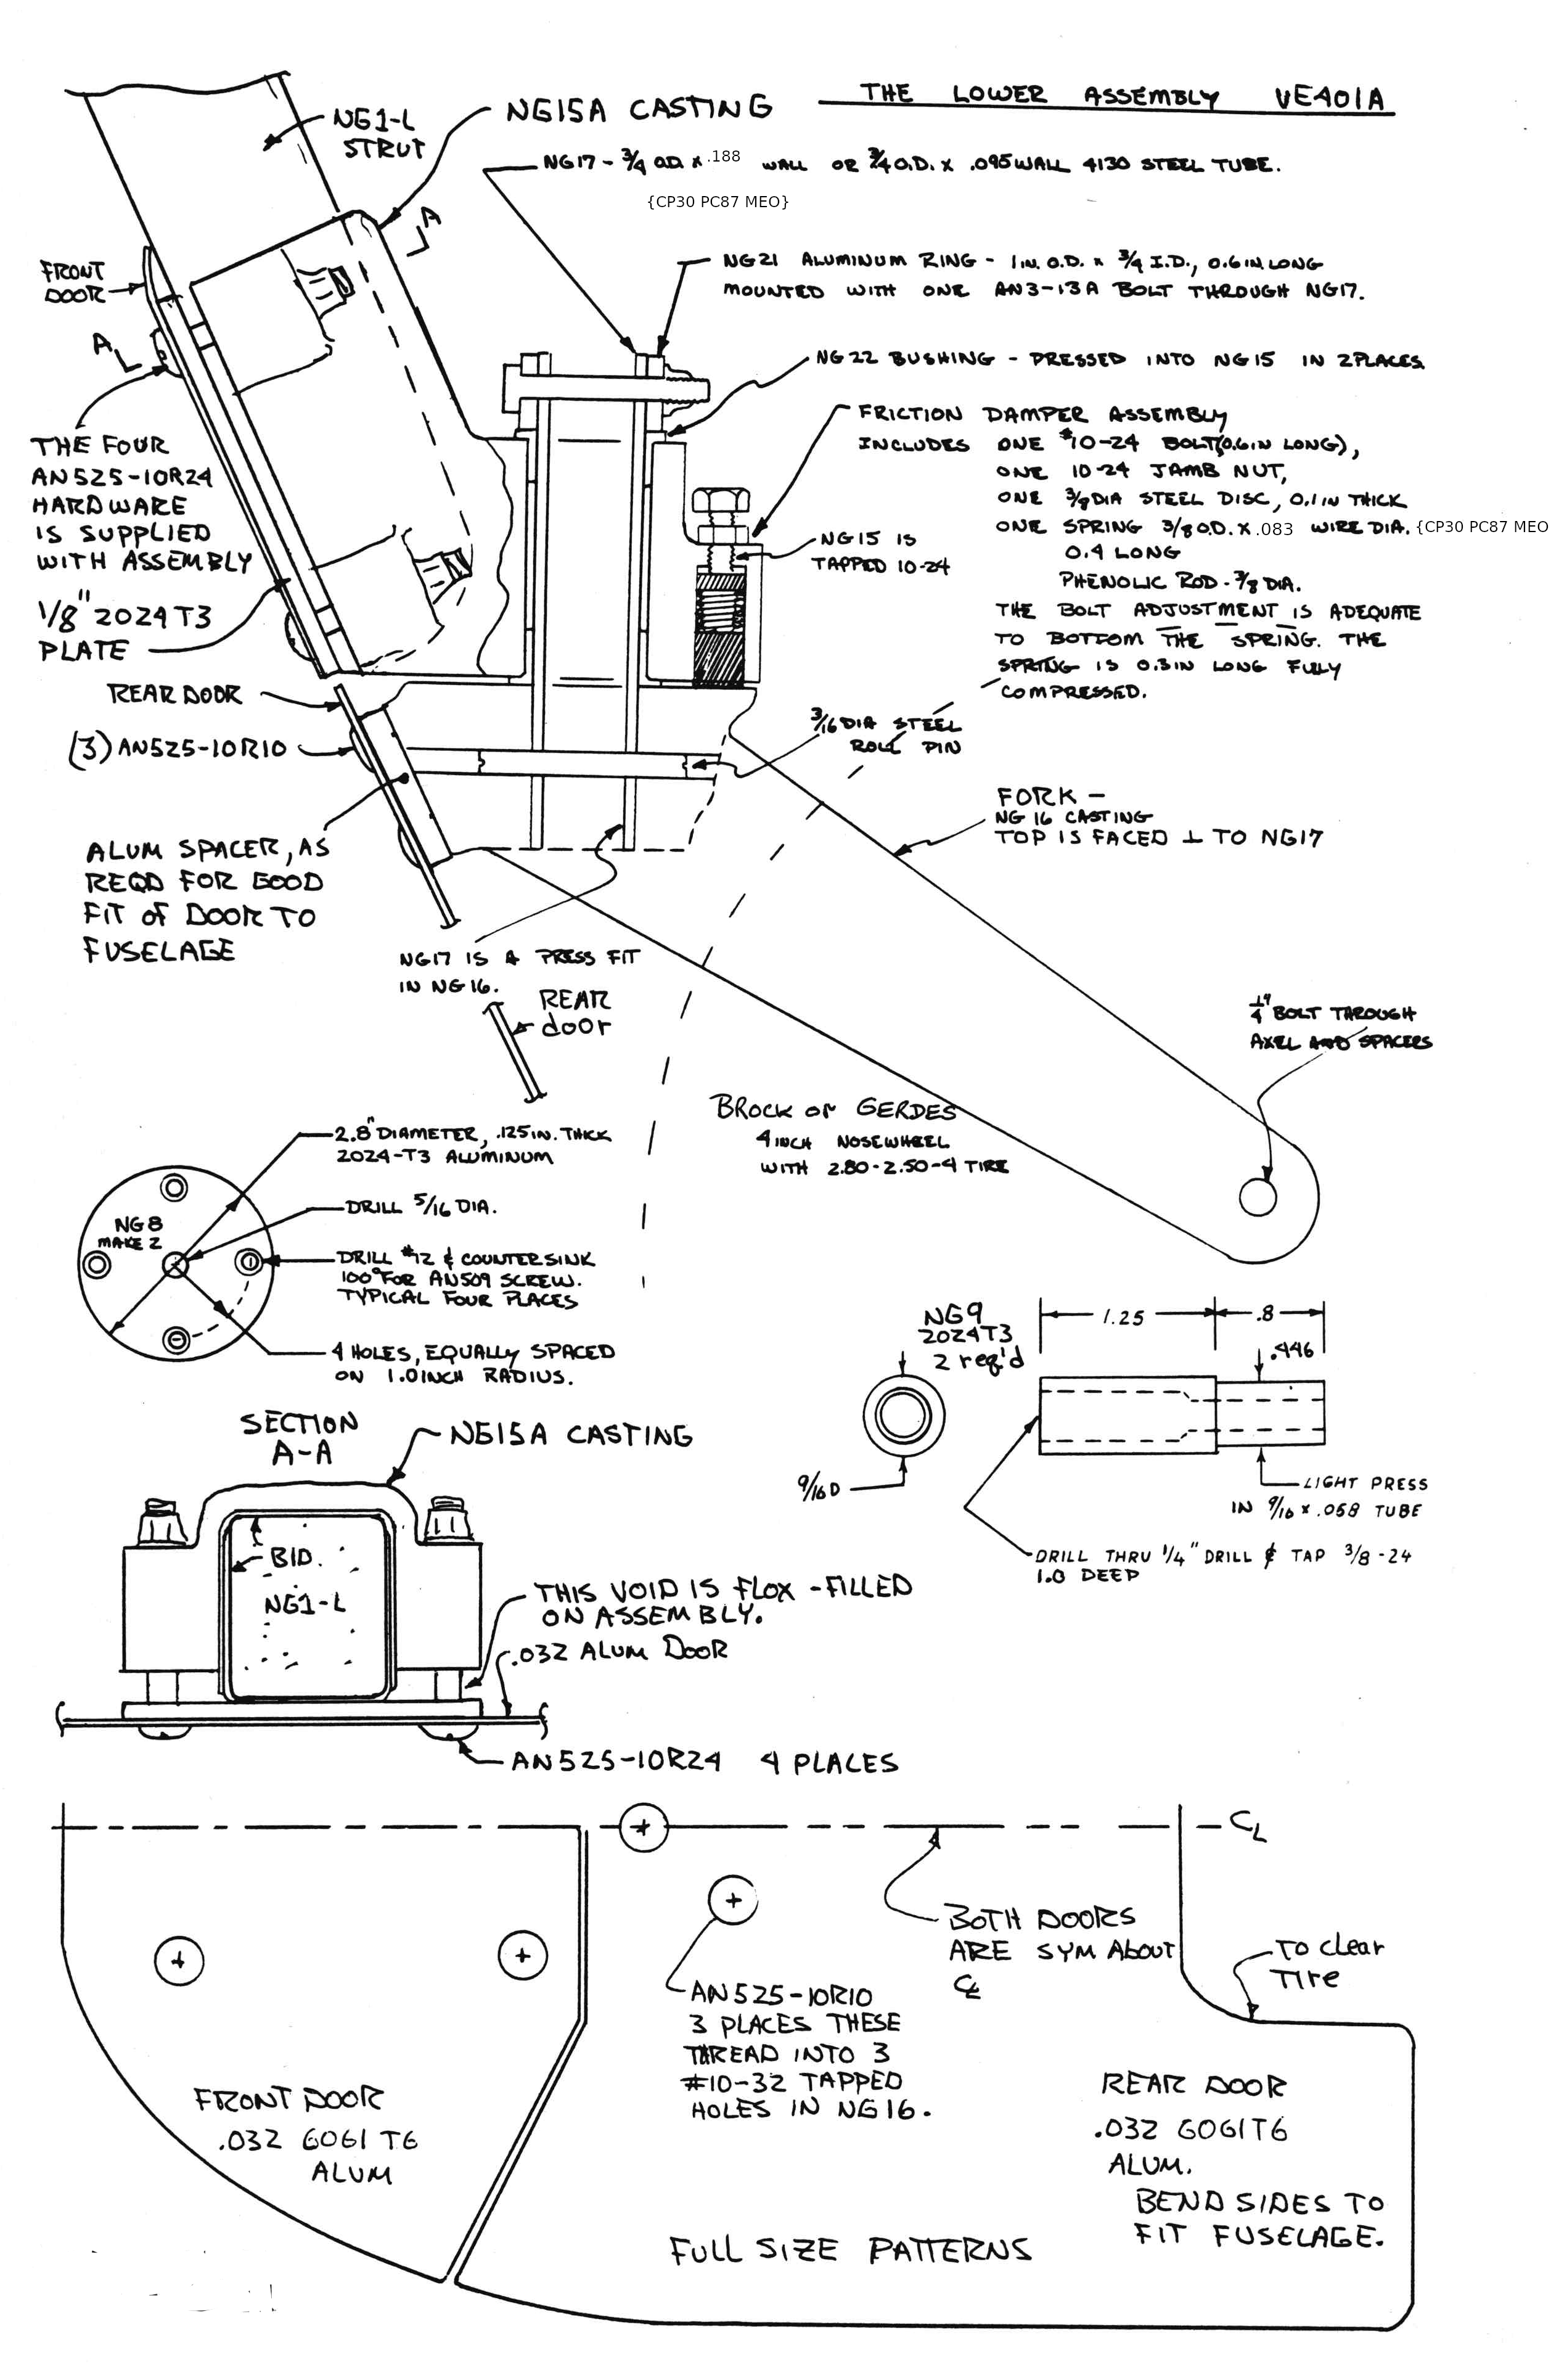 THE LOWER ASSEMBLY VE401A
NG1-L
STRUT
NG15A CASTING
NG17 - 3/4 O.D. x .188 WALL OR 3/4 O.D. x .095 WALL 4130 STEEL TUBE.
{CP30 PC87 MEO}
A
FRONT
DOOR
A
NG21 ALUMINUM RING - 1 IN. O.D. x 3/4 I.D., 0.6 IN LONG
MOUNTED WITH ONE AN3-13A BOLT THROUGH NG17.
NG22 BUSHING - PRESSED INTO NG15 IN 2 PLACES
FRICTION DAMPER ASSEMBLY
INCLUDES ONE #10-24 BOLT (0.6 IN LONG),
ONE 10-24 JAMB NUT,
ONE 3/8 DIA STEEL DISC, 0.1 IN THICK
ONE SPRING 3/8 O.D. x .083 WIRE DIA. {CP30 PC87 MEO
0.4 LONG
PHENOLIC ROD - 3/8 DIA.
THE BOLT ADJUSTMENT IS ADEQUATE
TO BOTTOM THE SPRING. THE
SPRING IS 0.3 IN LONG FULLY
COMPRESSED.
NG15 IS
TAPPED 10-24
THE FOUR
AN525-10R24
HARDWARE
IS SUPPLIED
WITH ASSEMBLY
1/8" 2024T3
PLATE
REAR DOOR
(3) AN525-10R10
3/16 DIA STEEL
ROLL PIN
FORK -
NG 16 CASTING
TOP IS FACED ⊥ TO NG17
ALUM SPACER, AS
REQD FOR GOOD
FIT of DOOR TO
FUSELAGE
NG17 IS A PRESS FIT
IN NG16.
REAR
door
1/4" BOLT THROUGH
AXEL AND SPACERS
BROCK or GERDES
4 INCH NOSEWHEEL
WITH 2.80-2.50-4 TIRE
2.8" DIAMETER, .125 IN. THICK
2024-T3 ALUMINUM
NG8
MAKE 2
DRILL 5/16 DIA.
DRILL #12 & COUNTERSINK
100° FOR AN509 SCREW.
TYPICAL FOUR PLACES
4 HOLES, EQUALLY SPACED
ON 1.0 INCH RADIUS.
NG9
2024T3
2 req'd
1.25
.8
.446
9/16 D
LIGHT PRESS
IN 9/16 x .058 TUBE
DRILL THRU 1/4" DRILL & TAP 3/8-24
1.0 DEEP
SECTION
A-A
NG15A CASTING
BID.
NG1-L
THIS VOID IS FLOX-FILLED
ON ASSEMBLY.
.032 ALUM DOOR
AN525-10R24 4 PLACES
CL
BOTH DOORS
ARE SYM About
CL
To clear
Tire
AN525-10R10
3 PLACES THESE
THREAD INTO 3
#10-32 TAPPED
HOLES IN NG16.
FRONT DOOR
.032 6061 T6
ALUM
REAR DOOR
.032 6061T6
ALUM.
BEND SIDES TO
FIT FUSELAGE.
FULL SIZE PATTERNS